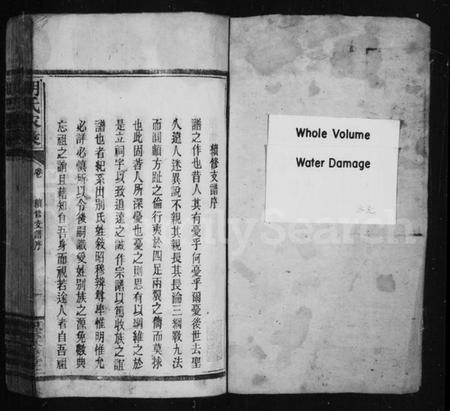 續修支譜序
譜之作也昔人其有憂乎何憂乎爾憂後世去聖
久遠人迷異說不親其親長其長淪三綱斁九法
而圓顱方趾之倫行夷於四足兩翼之儔而莫拯
也此固昔人所深憂也憂之則思有以綱維之於
是立祠宇以致追遠之誠作宗譜以篤收族之誼
譜也者紀系出別氏姓敘昭穆辨尊卑惟明惟允
必詳必慎所以令後嗣識受姓別族之源免數典
忘祖之誚且藉知自吾身而視若途人者自吾祖
卷
續修支譜序
Whole Volume
Water Damage
FamilySearch